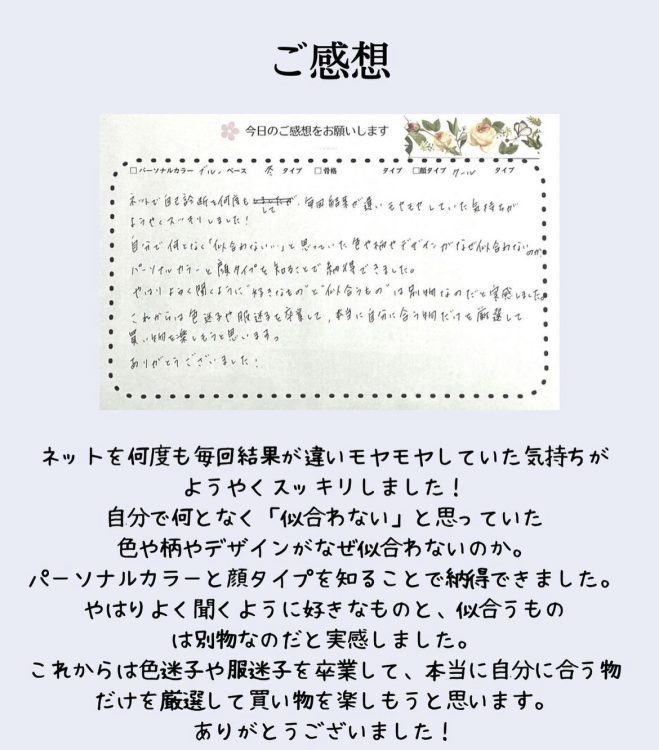 ご感想
今日のご感想をお願いします
□パーソナルカラー ブルー ベース 冬 タイプ □骨格 タイプ □顔タイプ クール タイプ
ネットで自己診断を何度も して 、毎回結果が違いモヤモヤしていた気持ちが
ようやくスッキリしました!
自分で何となく「似合わない」と思っていた色や柄やデザインがなぜ似合わないのか、
パーソナルカラーと顔タイプを知ることで納得できました。
やはりよく聞くように"好きなもの"と"似合うもの"は別物なのだと実感しました。
これからは色迷子や服迷子を卒業して、本当に自分に合う物だけを厳選して
買い物を楽しもうと思います。
ありがとうございました!
ネットを何度も毎回結果が違いモヤモヤしていた気持ちが
ようやくスッキリしました!
自分で何となく「似合わない」と思っていた
色や柄やデザインがなぜ似合わないのか。
パーソナルカラーと顔タイプを知ることで納得できました。
やはりよく聞くように好きなものと、似合うもの
は別物なのだと実感しました。
これからは色迷子や服迷子を卒業して、本当に自分に合う物
だけを厳選して買い物を楽しもうと思います。
ありがとうございました!